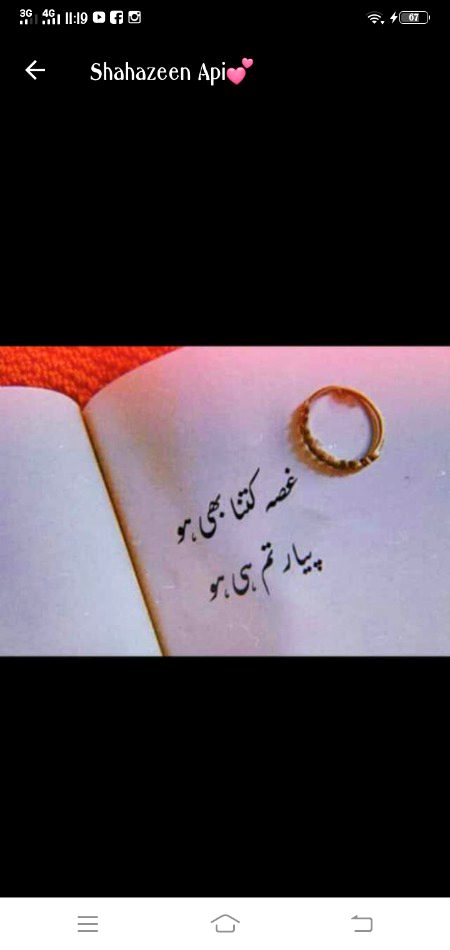 3G 4G 11:19 67
Shahazeen Api💕
غصہ کتنا بھی ہو
پیار تم ہی ہو